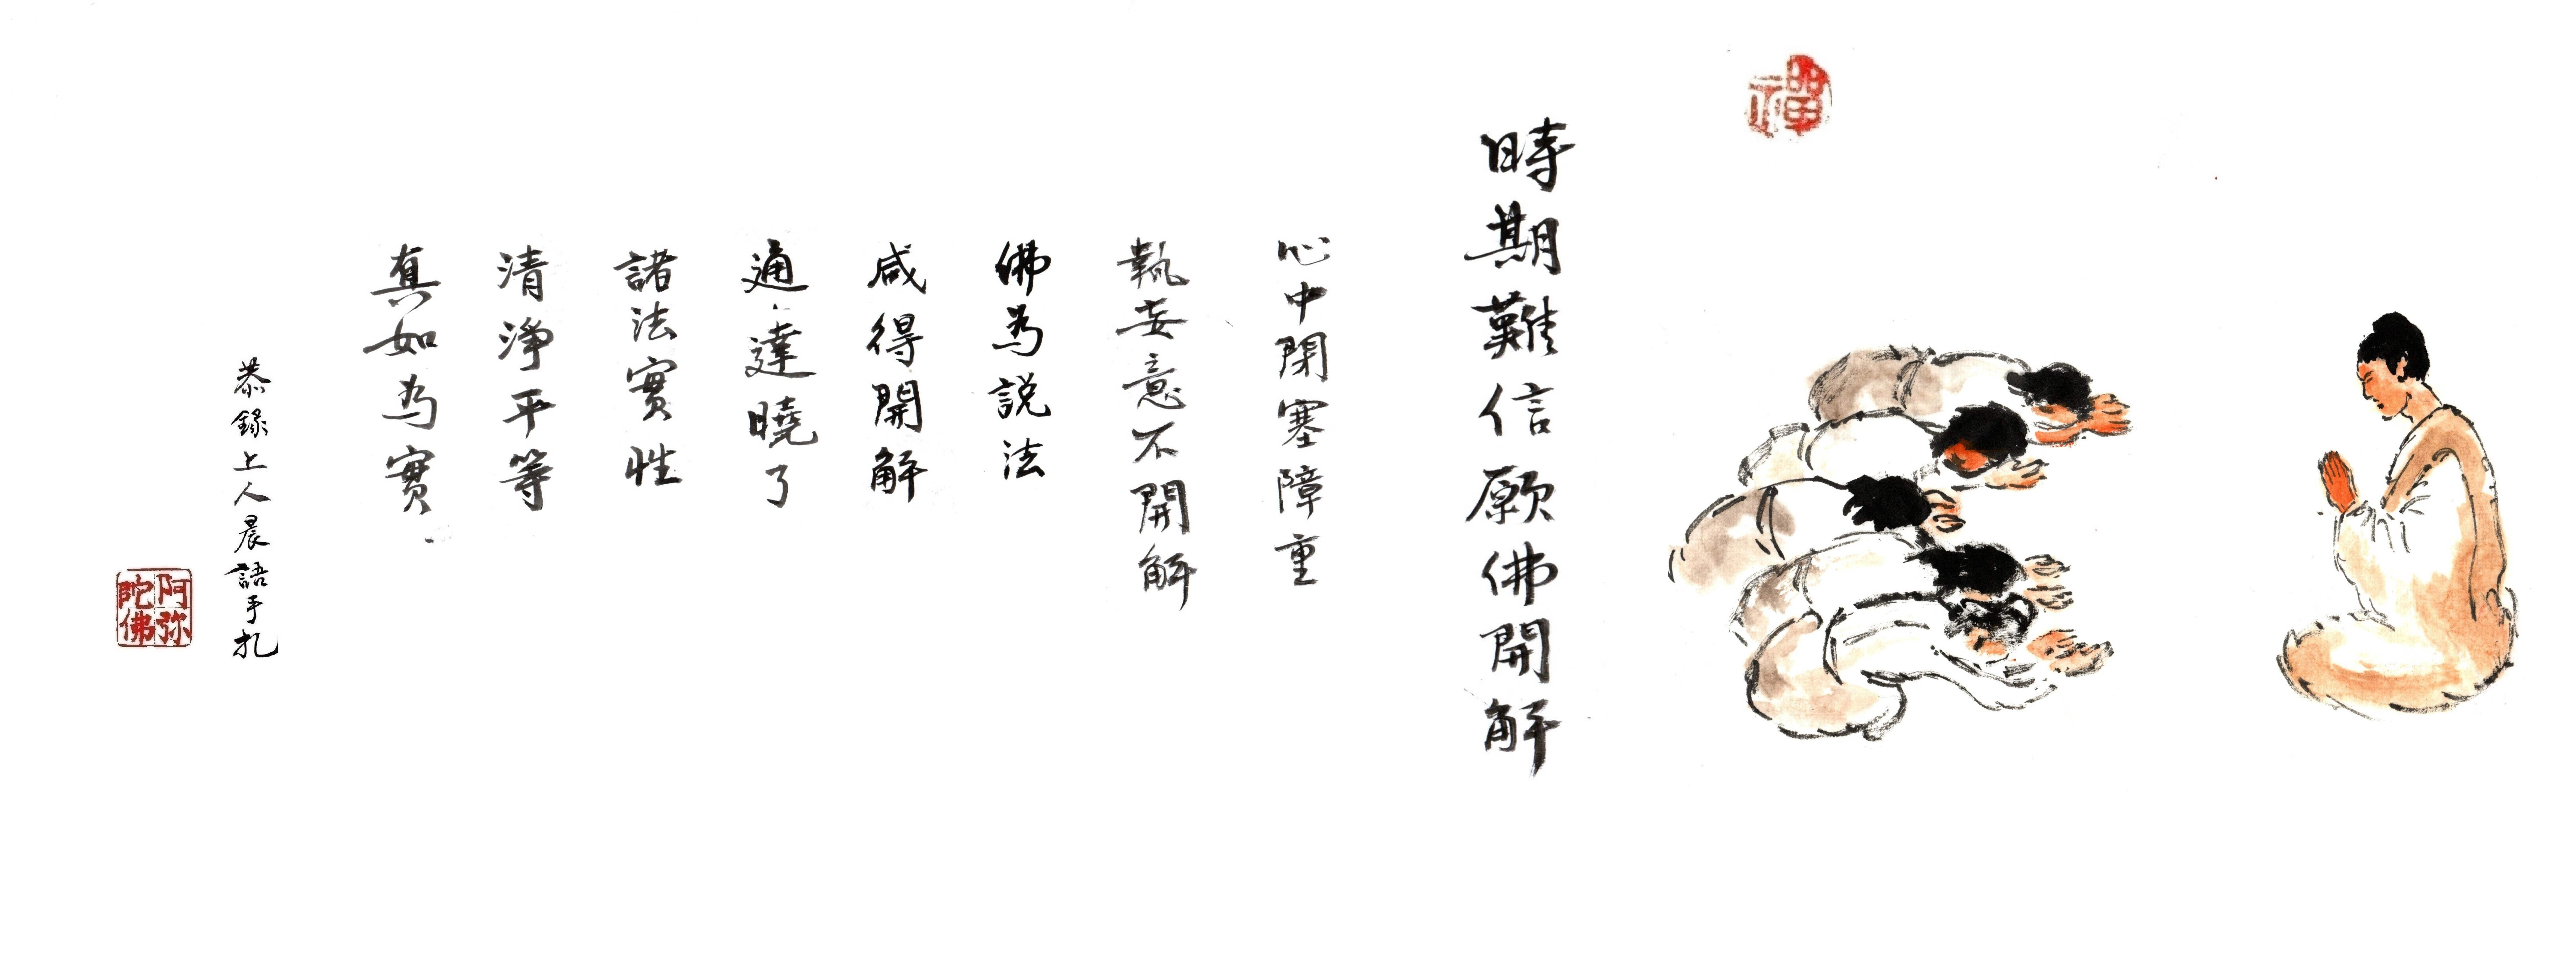 禪
時期難信願佛開解
心中閉塞障重
執妄意不開解
佛為説法
咸得開解
通達曉了
諸法實性
清淨平等
真如為實
恭錄上人晨語手扎
阿弥陀佛